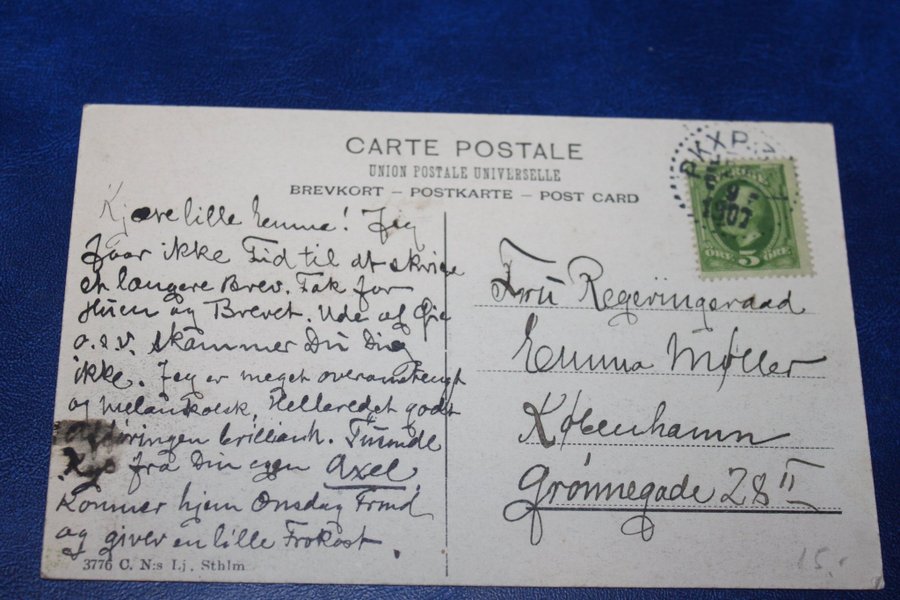 CARTE POSTALE
UNION POSTALE UNIVERSELLE
BREVKORT – POSTKARTE – POST CARD
PKXP
1907
SVERIGE
ÖRE 5 ÖRE
Kjære lille Emma! Jeg
faar ikke Tid til at skrive
et længere Brev. Tak for
Huen og Brevet. Ude af Øie
o.s.v. skammer Du Dig
ikke. Jeg er meget overanstrengt
og melankolsk, Helbredet godt
brilliant. Tusinde
Kys fra Din egen Axel.
Kommer hjem Onsdag
og giver en lille Frokost.
Fru Regeringsraad
Emma Møller
København
Grønnegade 28 II
3776 C. N:s Lj. Sthlm
15.-